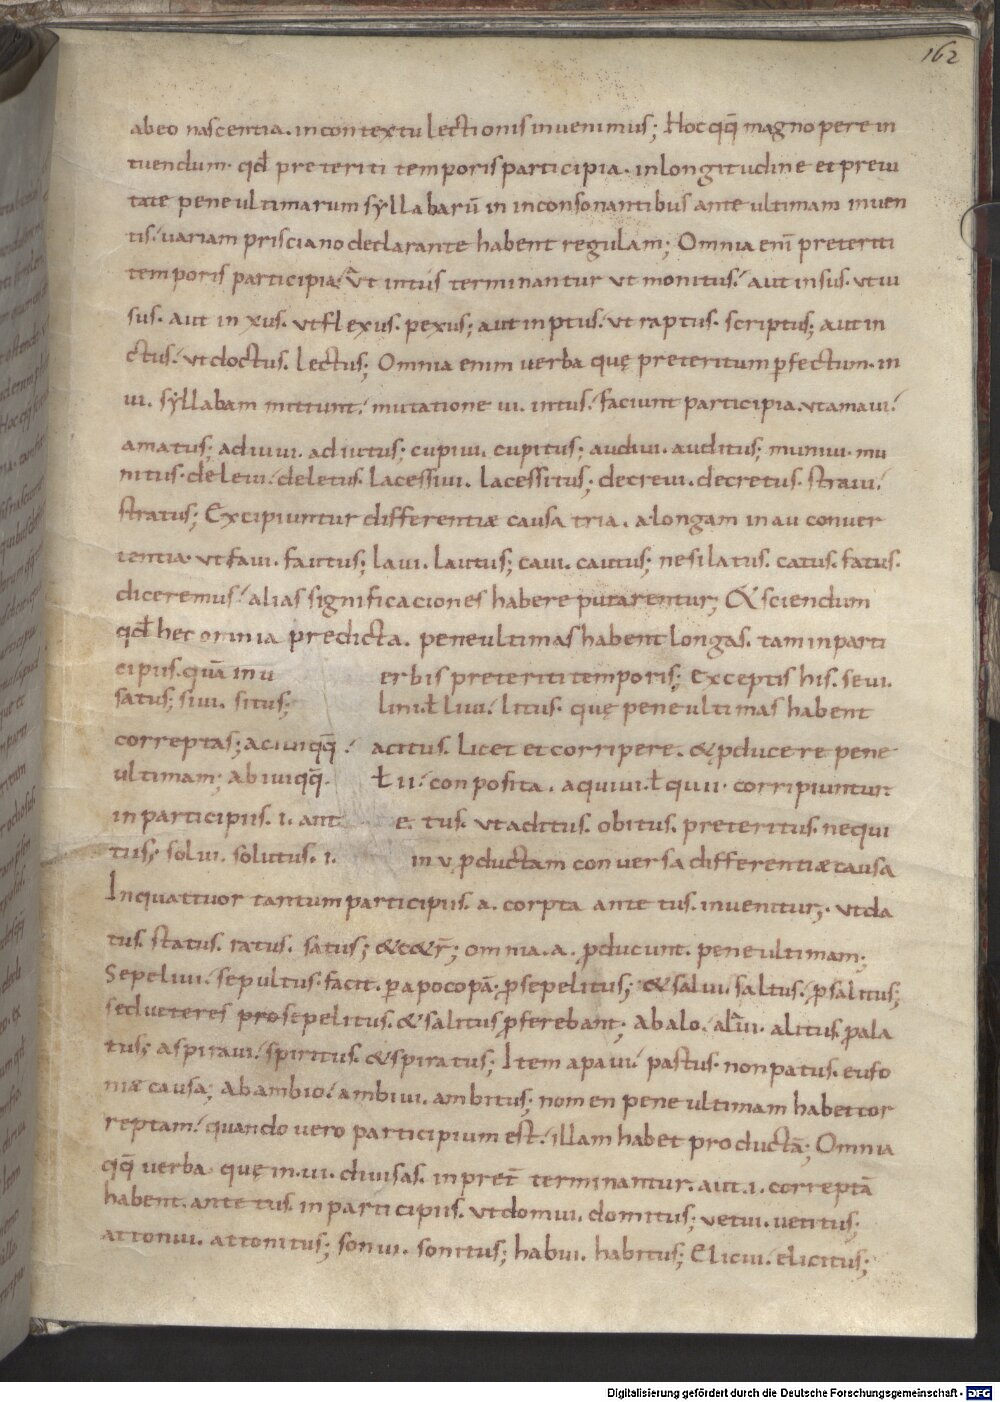 162
abeo nascentia. in contextu lectionis invenimus; Hoc qq̄ magno pere in
tuendum. qđ preteriti temporis participia. in longitudine et previ
tate pene ultimarum syllabarū in inconsonantibus ante ultimam inven
tis. variam prisciano declarante habent regulam; Omnia eni̅ preteriti
temporis participia. Aut in tus terminantur ut monitus. aut in sus. ut vi
sus. aut in xus. ut flexus. pexus; aut in ptus. ut raptus. scriptus; aut in
ctus. ut doctus. lectus; Omnia enim verba quę preteritum ꝑfectum. in
vi. syllabam mittunt. mutatione vi. in tus. faciunt participia. ut amavi.
amatus; adiuvi. adiutus; cupivi. cupitus; audivi. auditus; munivi. mu
nitus. delevi. deletus. lacessivi. lacessitus; decrevi. decretus. stravi.
stratus; Excipiuntur differentiæ causa tria. a longam in au conver
tentia. ut favi. fautus; lavi. lautus; cavi. cautus; ne si latus. catus. fatus.
diceremus. alias significaciones habere putarentur; & sciendum
qđ hec omnia predicta. pene ultimas habent longas. tam in parti
cipiis. quā in u erbis preteriti temporis; Exceptis his. sevi.
satus; sivi. situs; lini. ł livi. litus. quę pene ultimas habent
correptas; acivi qq̄. acitus. licet et corripere. & ꝓducere pene
ultimam; Ab ivi qq̄. ł ii. conposita. a quivi. ł quii. corripiuntur.
in participiis. i. ant e. tus. ut aditus. obitus. preteritus. nequi
tus; solvi. solutus. i. in v. ꝓductam conversa differentiæ causa
In quattuor tantum participiis. a. corpta ante tus. invenitur; ut da
tus. status. ratus. satus; & cetr̄; omnia. a. ꝓducunt. pene ultimam;
Sepelivi. sepultus. facit. ꝑ apocopā. ꝓ sepelitus; & salivi. saltus. ꝓ salitus;
sed veteres pro sepelitus. & salitus ꝓferebant; Ab alo. alui. alitus ꝓ ala
tus; aspiravi. spiritus. & spiratus; Item a pavi. pastus. non patus. eufo
niæ causa; ab ambio. ambivi. ambitus; nomen pene ultimam habet cor
reptam. quando vero participium est. illam habet productā; Omnia
qq̄ verba quę in. vi. divisas. in preт̄ terminantur. aut. i. correptā
habent. ante tus. in participiis. ut domui. domitus; vetui. vetitus;
attonui. attonitus; sonui. sonitus; habui. habitus; Elicui. elicitus;
Digitalisierung gefördert durch die Deutsche Forschungsgemeinschaft - DFG